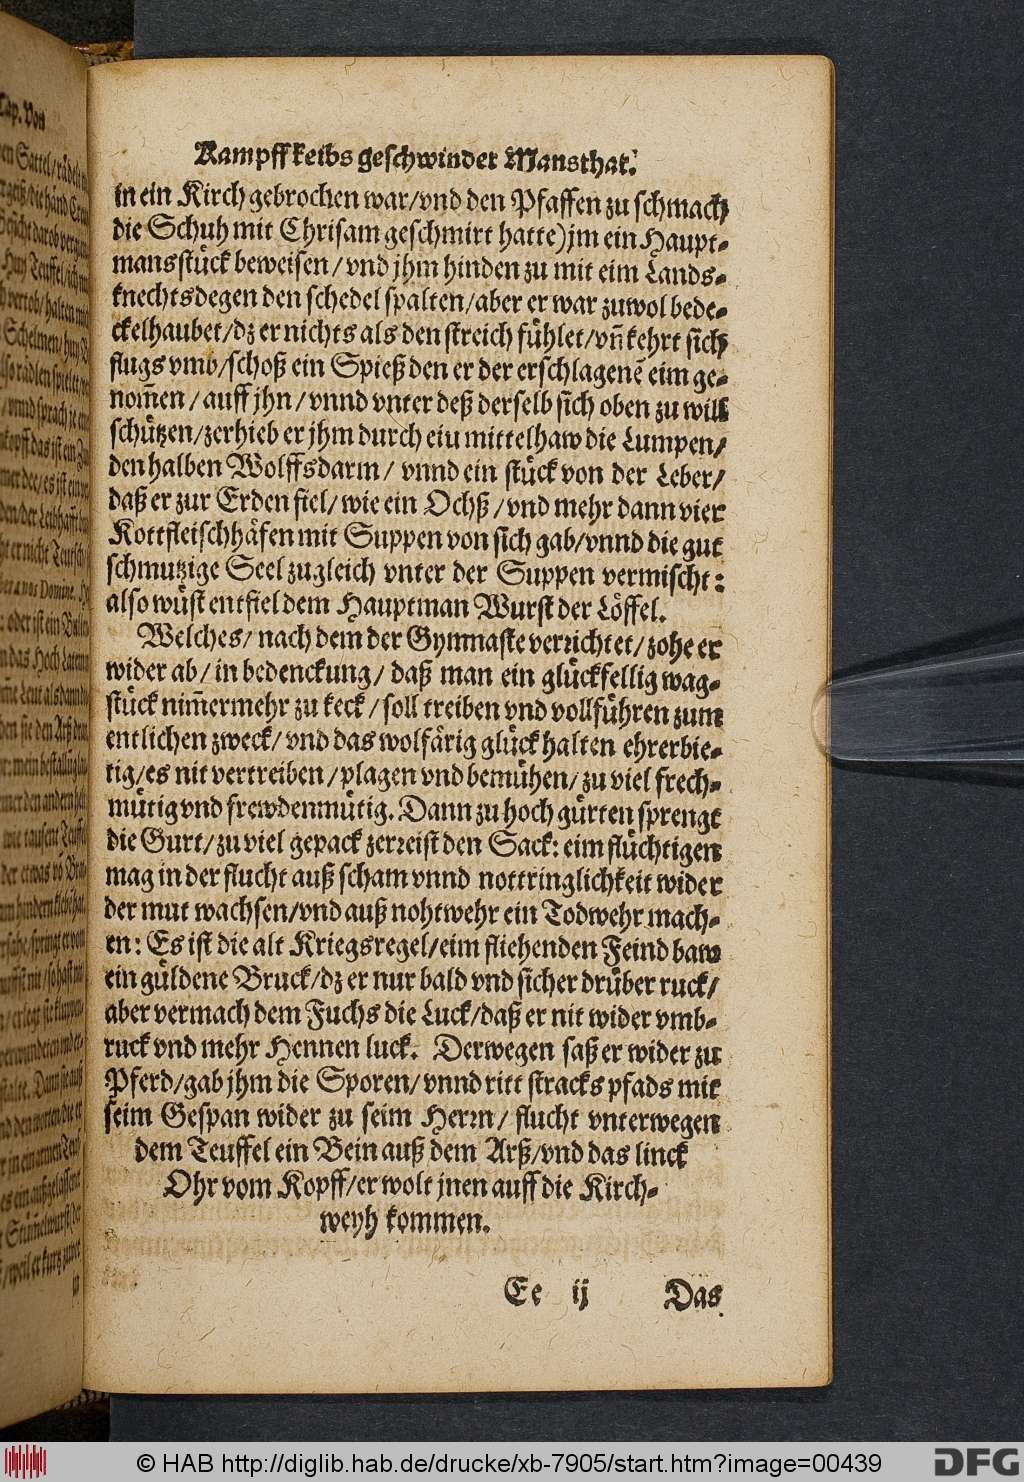 Kampffkeibs geschwinder Mansthat.
in ein Kirch gebrochen war/vnd den Pfaffen zu schmach
die Schuh mit Chrisam geschmirt hatte)jm ein Haupt-
mansstück beweisen/vnd jhm hinden zu mit eim Lands-
knechtsdegen den schedel spalten/aber er war zuwol bede-
ckelhaubet/dz er nichts als den streich fühlet/vñ kehrt sich
flugs vmb/schoß ein Spieß den er der erschlagenẽ eim ge-
nom̃en/auff jhn/vnnd vnter deß derselb sich oben zu will
schützen/zerhieb er jhm durch eiu mittelhaw die Lumpen/
den halben Wolffsdarm/vnnd ein stück von der Leber/
daß er zur Erden fiel/wie ein Ochß/vnd mehr dann vier
Kottfleischhäfen mit Suppen von sich gab/vnnd die gut
schmutzige Seel zugleich vnter der Suppen vermischt:
also wüst entfiel dem Hauptman Wurst der Löffel.
Welches/nach dem der Gymnaste verrichtet/zohe er
wider ab/in bedenckung/daß man ein glückfellig wag-
stück nim̃ermehr zu keck/soll treiben vnd vollführen zum
entlichen zweck/vnd das wolfärig glück halten ehrerbie-
tig/es nit vertreiben/plagen vnd bemühen/zu viel frech-
mütig vnd frewdenmütig. Dann zu hoch gürten sprengt
die Gurt/zu viel gepack zerreist den Sack: eim flüchtigen
mag in der flucht auß scham vnnd nottringlichkeit wider
der mut wachsen/vnd auß nohtwehr ein Todwehr mach-
en: Es ist die alt Kriegsregel/eim fliehenden Feind baw
ein güldene Bruck/dz er nur bald vnd sicher drüber ruck/
aber vermach dem Fuchs die Luck/daß er nit wider vmb-
ruck vnd mehr Hennen luck. Derwegen saß er wider zu
Pferd/gab jhm die Sporen/vnnd ritt stracks pfads mit
seim Gespan wider zu seim Herrn/flucht vnterwegen
dem Teuffel ein Bein auß dem Arß/vnd das linck
Ohr vom Kopff/er wolt jnen auff die Kirch-
weyh kommen.
Ee ij Das
© HAB http://diglib.hab.de/drucke/xb-7905/start.htm?image=00439
DFG